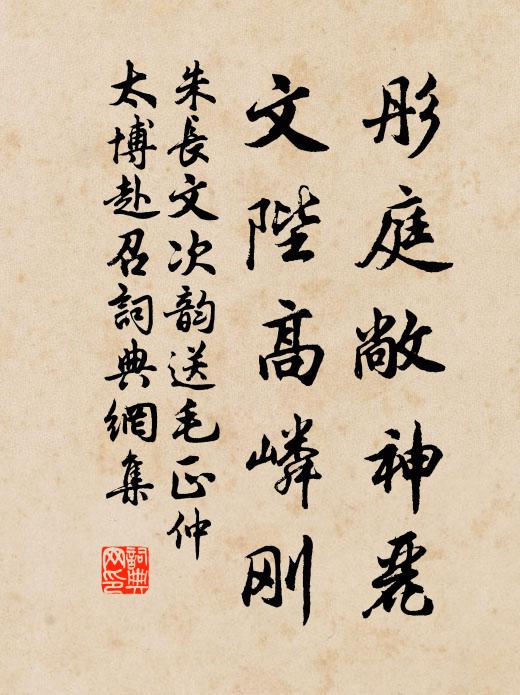 彤庭敞神麗
文陛高嶙刚
朱長文次韵送毛正仲
太博赴召詞典網集
詞典网印